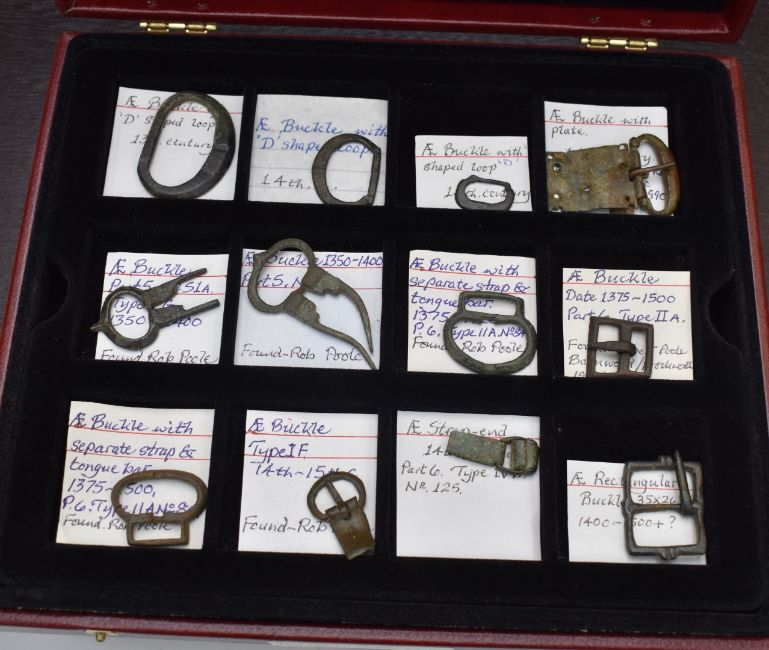 Æ Buckle
'D' shaped loop
13th century
Æ Buckle with
'D' shaped loop
14th.
Æ Buckle with
shaped loop 'D'.
century
Æ Buckle with
plate.
Æ Buckle
Part 5. 51A.
Type
1350 - 1400
Found Rob Poole
Æ Buckle 1350-1400
Part 5, N
Found - Rob Poole
Æ Buckle with
separate strap &
tongue bar.
1375
P.6. Type IIA Nº
Found Rob Poole
Æ Buckle
Date 1375~1500
Part 6. Type II A.
Poole
Æ Buckle with
separate strap &
tongue bar
1375 ~ 1500.
P.6. Type IIA Nº 8
Found. Rob Poole
Æ Buckle
Type I F.
14th ~ 15th c
Found - Rob
Æ Strap-end
14th
Part 6. Type IV
Nº. 125.
Æ Rectangular
Buckle 35x26
1400 - 1500+?